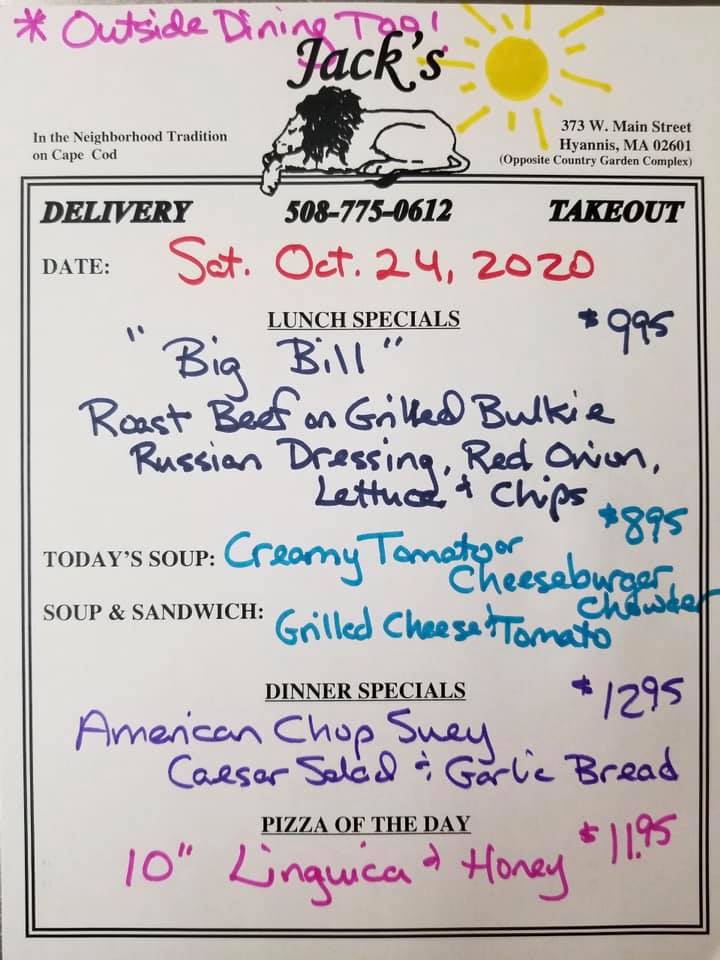 * Outside Dining Too!
Jack's
In the Neighborhood Tradition
on Cape Cod
373 W. Main Street
Hyannis, MA 02601
(Opposite Country Garden Complex)
DELIVERY 508-775-0612 TAKEOUT
DATE: Sat. Oct. 24, 2020
LUNCH SPECIALS $995
"Big Bill"
Roast Beef on Grilled Bulkie
Russian Dressing, Red Onion,
Lettuce & Chips
$895
TODAY'S SOUP: Creamy Tomato or
Cheeseburger
Chowder
SOUP & SANDWICH: Grilled Cheese & Tomato
DINNER SPECIALS $1295
American Chop Suey
Caesar Salad & Garlic Bread
PIZZA OF THE DAY $11.95
10" Linguica & Honey